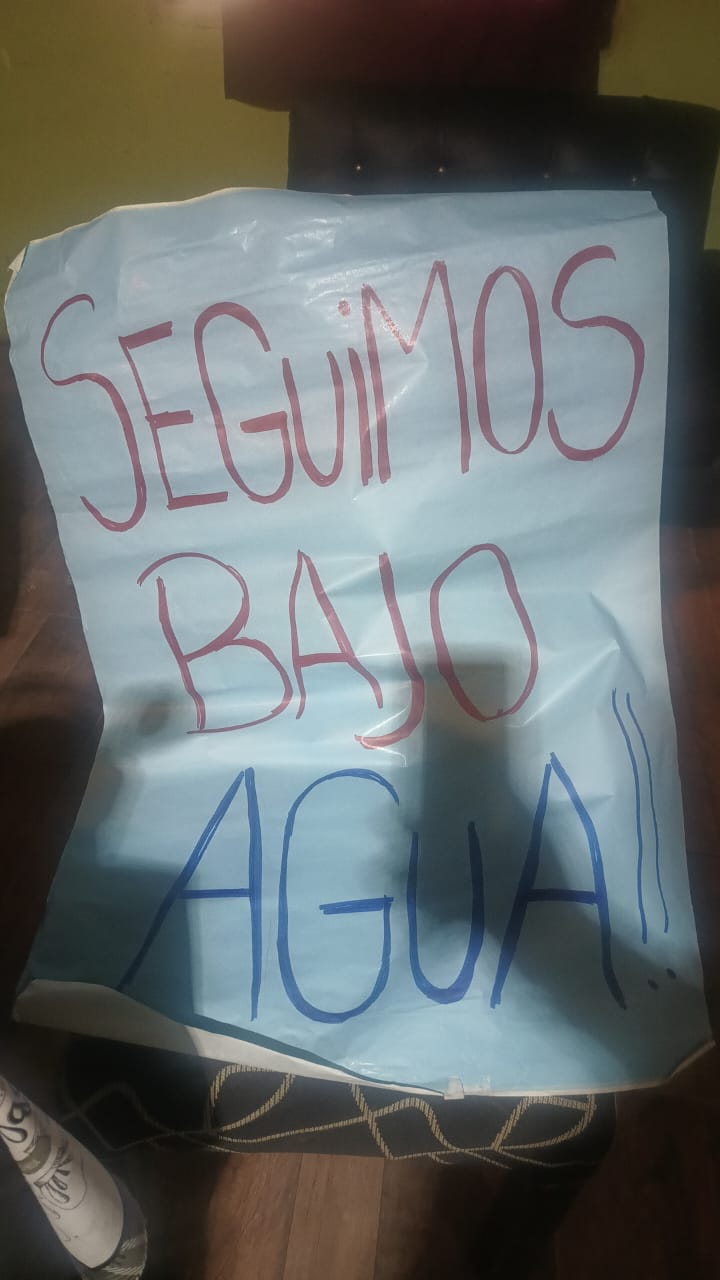 SEGUiMOS
BAJO
AGUA!!